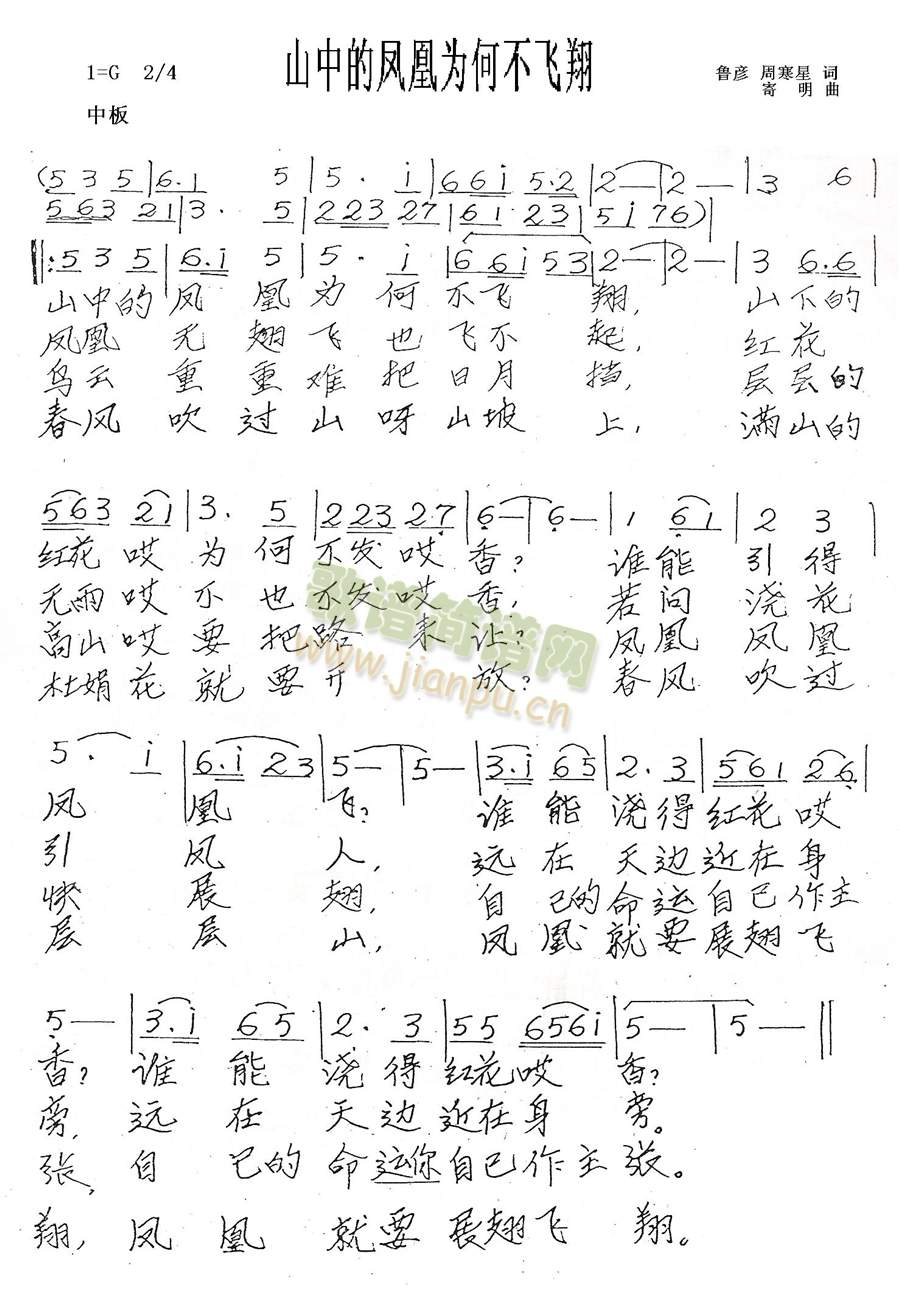 山中的凤凰为何不飞翔
1=G 2/4
鲁彦 周寒星 词
寄 明 曲
中板
(5 3 5|6.1 5|5. i|66i 5.2|2—|2—|3 6|
563 21|3. 5|223 27|61 23|5i 76)|
‖:5 3 5|6.i 5|5. i|6 6i 53|2—|2—|3 6.6|
山中的 凤 凰 为 何 不飞 翔, 山下的
凤凰 无 翅 飞 也 飞不 起, 红花
乌云 重 重 难 把 日月 挡, 层层的
春风 吹 过 山 呀 山坡 上, 满山的
563 21|3. 5|223 27|6—|6—|1 61|2 3|
红花 哎 为 何 不发 哎 香? 谁能 引 得
无雨 哎 不 也 不发 哎 香, 若问 浇 花
高山 哎 要 把 路 来 让? 凤凰 凤 凰
杜娟 花 就 要 开 放? 春风 吹 过
歌谱简谱网
www.jianpu.cn
5. i|6.i 23|5—|5—|3.i 65|2. 3|561 26|
凤 凰 飞? 谁 能 浇得 红花 哎
引 凤 人, 远 在 天边 近在 身
快 展 翅, 自 已的 命运 自已 作主
层 层 山, 凤 凰 就要 展翅 飞
5—|3.i 65|2. 3|55 656i|5—|5—‖
香? 谁 能 浇 得 红花 哎 香?
旁, 远 在 天 边 近在 身 旁。
张, 自 已的 命 运你 自已 作 主 张。
翔, 凤 凰 就 要 展翅 飞 翔。